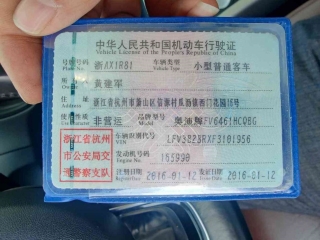 中华人民共和国机动车行驶证
Vehicle License of the People's Republic of China
号牌号码 浙AX1R81 车辆类型 小型普通客车
Plate No. Vehicle Type
所有人 黄建军
Owner
住址 浙江省杭州市萧山区
Address
使用性质 非营运 品牌型号 奥迪牌FV6461HCQBG
Use Character Model
浙江省杭州
市公安局交
通警察支队
车辆识别代号 LFV3B28RXF3101956
VIN
发动机号码 165998
Engine No.
注册日期 2016-01-12 发证日期 2016-01-12
Register Date Issue Date